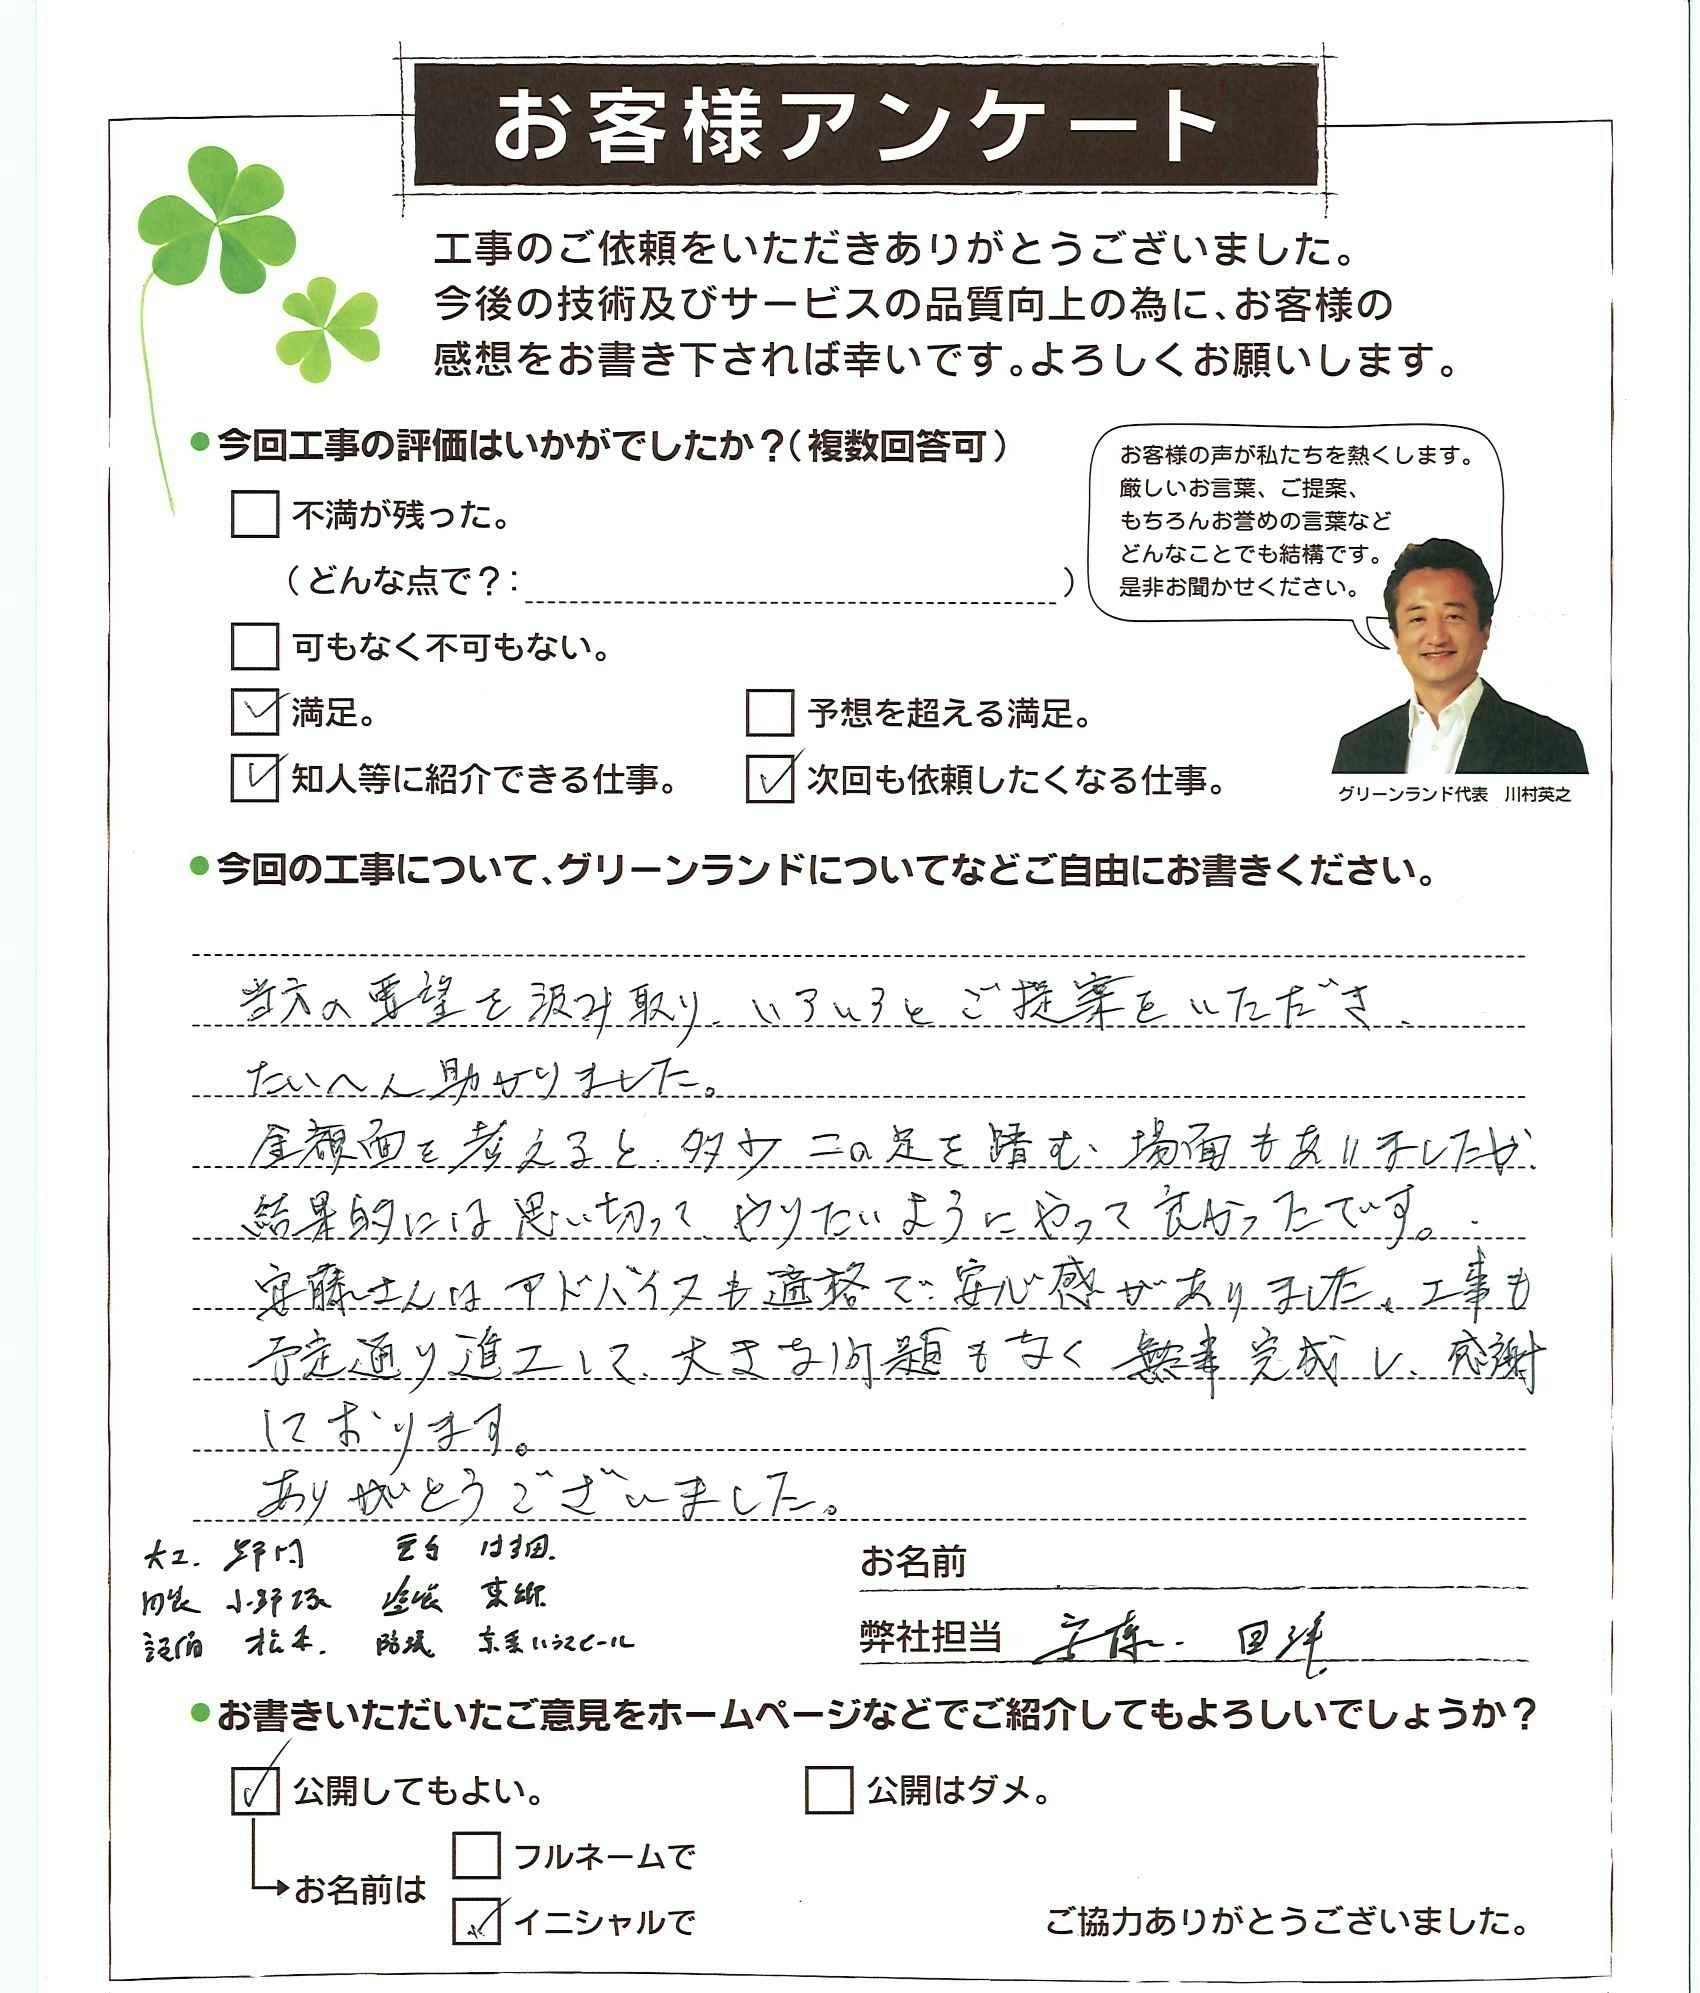 お客様アンケート
工事のご依頼をいただきありがとうございました。
今後の技術及びサービスの品質向上の為に、お客様の
感想をお書き下されば幸いです。よろしくお願いします。
●今回工事の評価はいかがでしたか？（複数回答可）
不満が残った。
（どんな点で？：　　　）
可もなく不可もない。
満足。
予想を超える満足。
知人等に紹介できる仕事。
次回も依頼したくなる仕事。
お客様の声が私たちを熱くします。
厳しいお言葉、ご提案、
もちろんお誉めの言葉など
どんなことでも結構です。
是非お聞かせください。
グリーンランド代表　川村英之
●今回の工事について、グリーンランドについてなどご自由にお書きください。
当方の要望を汲み取り、いろいろとご提案をいただき、
たいへん助かりました。
金額面を考えると、多少二の足を踏む、場面もありましたが、
結果的には思い切って、やりたいようにやって良かったです。
安藤さんはアドバイスも適格で安心感がありました。工事も
予定通り進工して、大きな問題もなく無事完成し、感謝
しております。
ありがとうございました。
大工. 野内
内装 小野塚 塗装 東郷
設備 松本.
お名前
弊社担当 安藤・
●お書きいただいたご意見をホームページなどでご紹介してもよろしいでしょうか？
公開してもよい。
公開はダメ。
お名前は
フルネームで
イニシャルで
ご協力ありがとうございました。